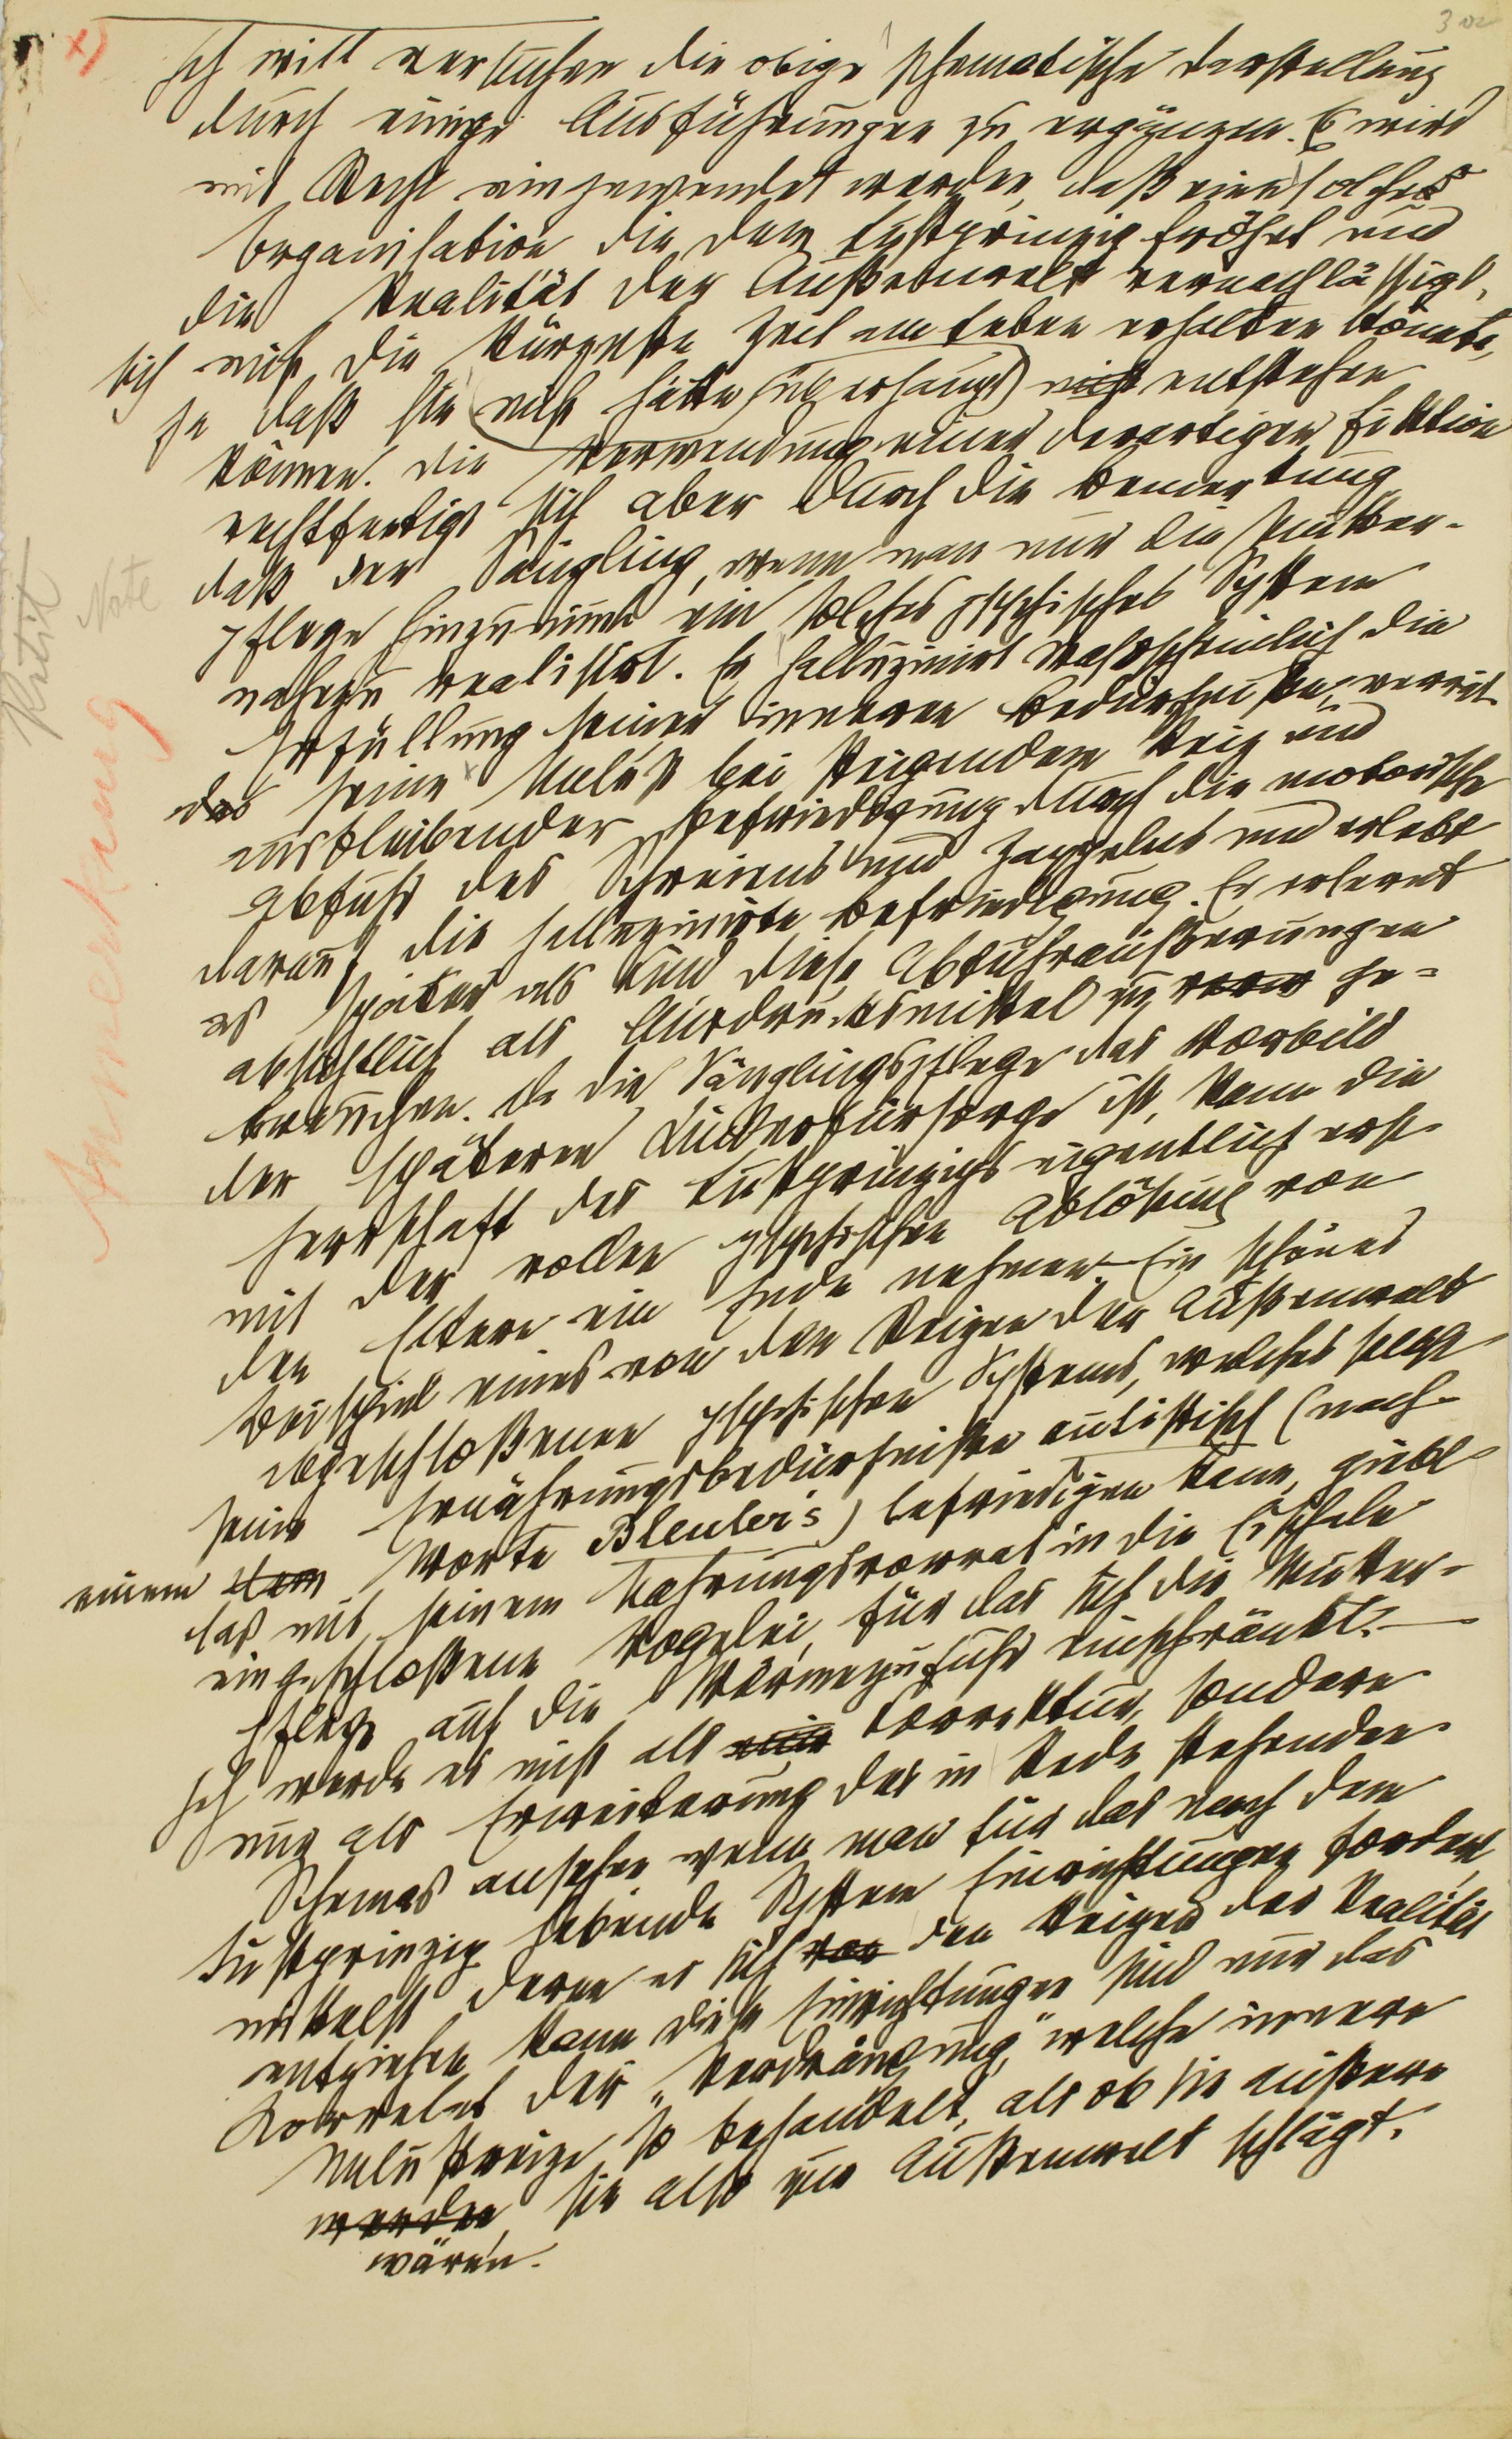 3 
x)
Ich will versuchen die obige schematische Darstellung
durch einige Ausführungen zu ergänzen. Es wird
mit Recht eingewendet werden, daß eine solche
Organisation die dem Lustprinzip fröhnt und
die Realität der Außenwelt vernachlässigt,
sich nicht die kürzeste Zeit am Leben erhalten könnte,
so daß sie nicht hätte (überhaupt) nicht entstehen
können. Die Verwendung einer derartigen Fiktion
rechtfertigt sich aber durch die Bemerkung
daß der Säugling, wenn man nur die Mutter-
pflege hinzunimmt ein solches psychisches System
nahezu realisirt. Er halluzinirt wahrscheinlich die
Erfüllung seiner inneren Bedürfnisse, verrät
das seine Unlust bei steigendem Reiz und
ausbleibender Befriedigung durch die motorische
Abfuhr des Schreiens und Zappelns und erlebt
darauf die halluzinirte Befriedigung. Er erlernt
es später als Kind diese Abfuhräußerungen
absichtlich als Ausdrucksmittel zu ge-
brauchen. Da die Säuglingspflege das Vorbild
der späteren Kinderfürsorge ist, kann die
Herrschaft des Lustprinzips eigentlich erst
mit der vollen psychischen Ablösung von
den Eltern ein Ende nehmen. Ein schönes
Beispiel eines von den Reizen der Außenwelt
abgeschloßenen psychischen Systems, welches selbst
seine Ernährungsbedürfnisse autistisch (nach
einem dem Worte Bleuler's) befriedigen kann, giebt
das mit seinem Nahrungsvorrat in die Eischale
eingeschloßene Vogelei, für das sich die Mutter-
pflege auf die Wärmezufuhr einschränkt. —
Ich werde es nicht als eine Korrektur, sondern
nur als Erweiterung des in Rede stehenden
Schemas ansehen wenn man für das nach dem
Lustprinzip lebende System Einrichtungen fordert,
mittelst deren es sich von den Reizen der Realität
entziehen kann. Diese Einrichtungen sind nur das
Korrelat der „Verdrängung", welche innere
Unlustreize so behandelt, als ob sie äußere
werden, sie also zur Außenwelt schlägt.
wären.
Anmerkung
Note
Kritik